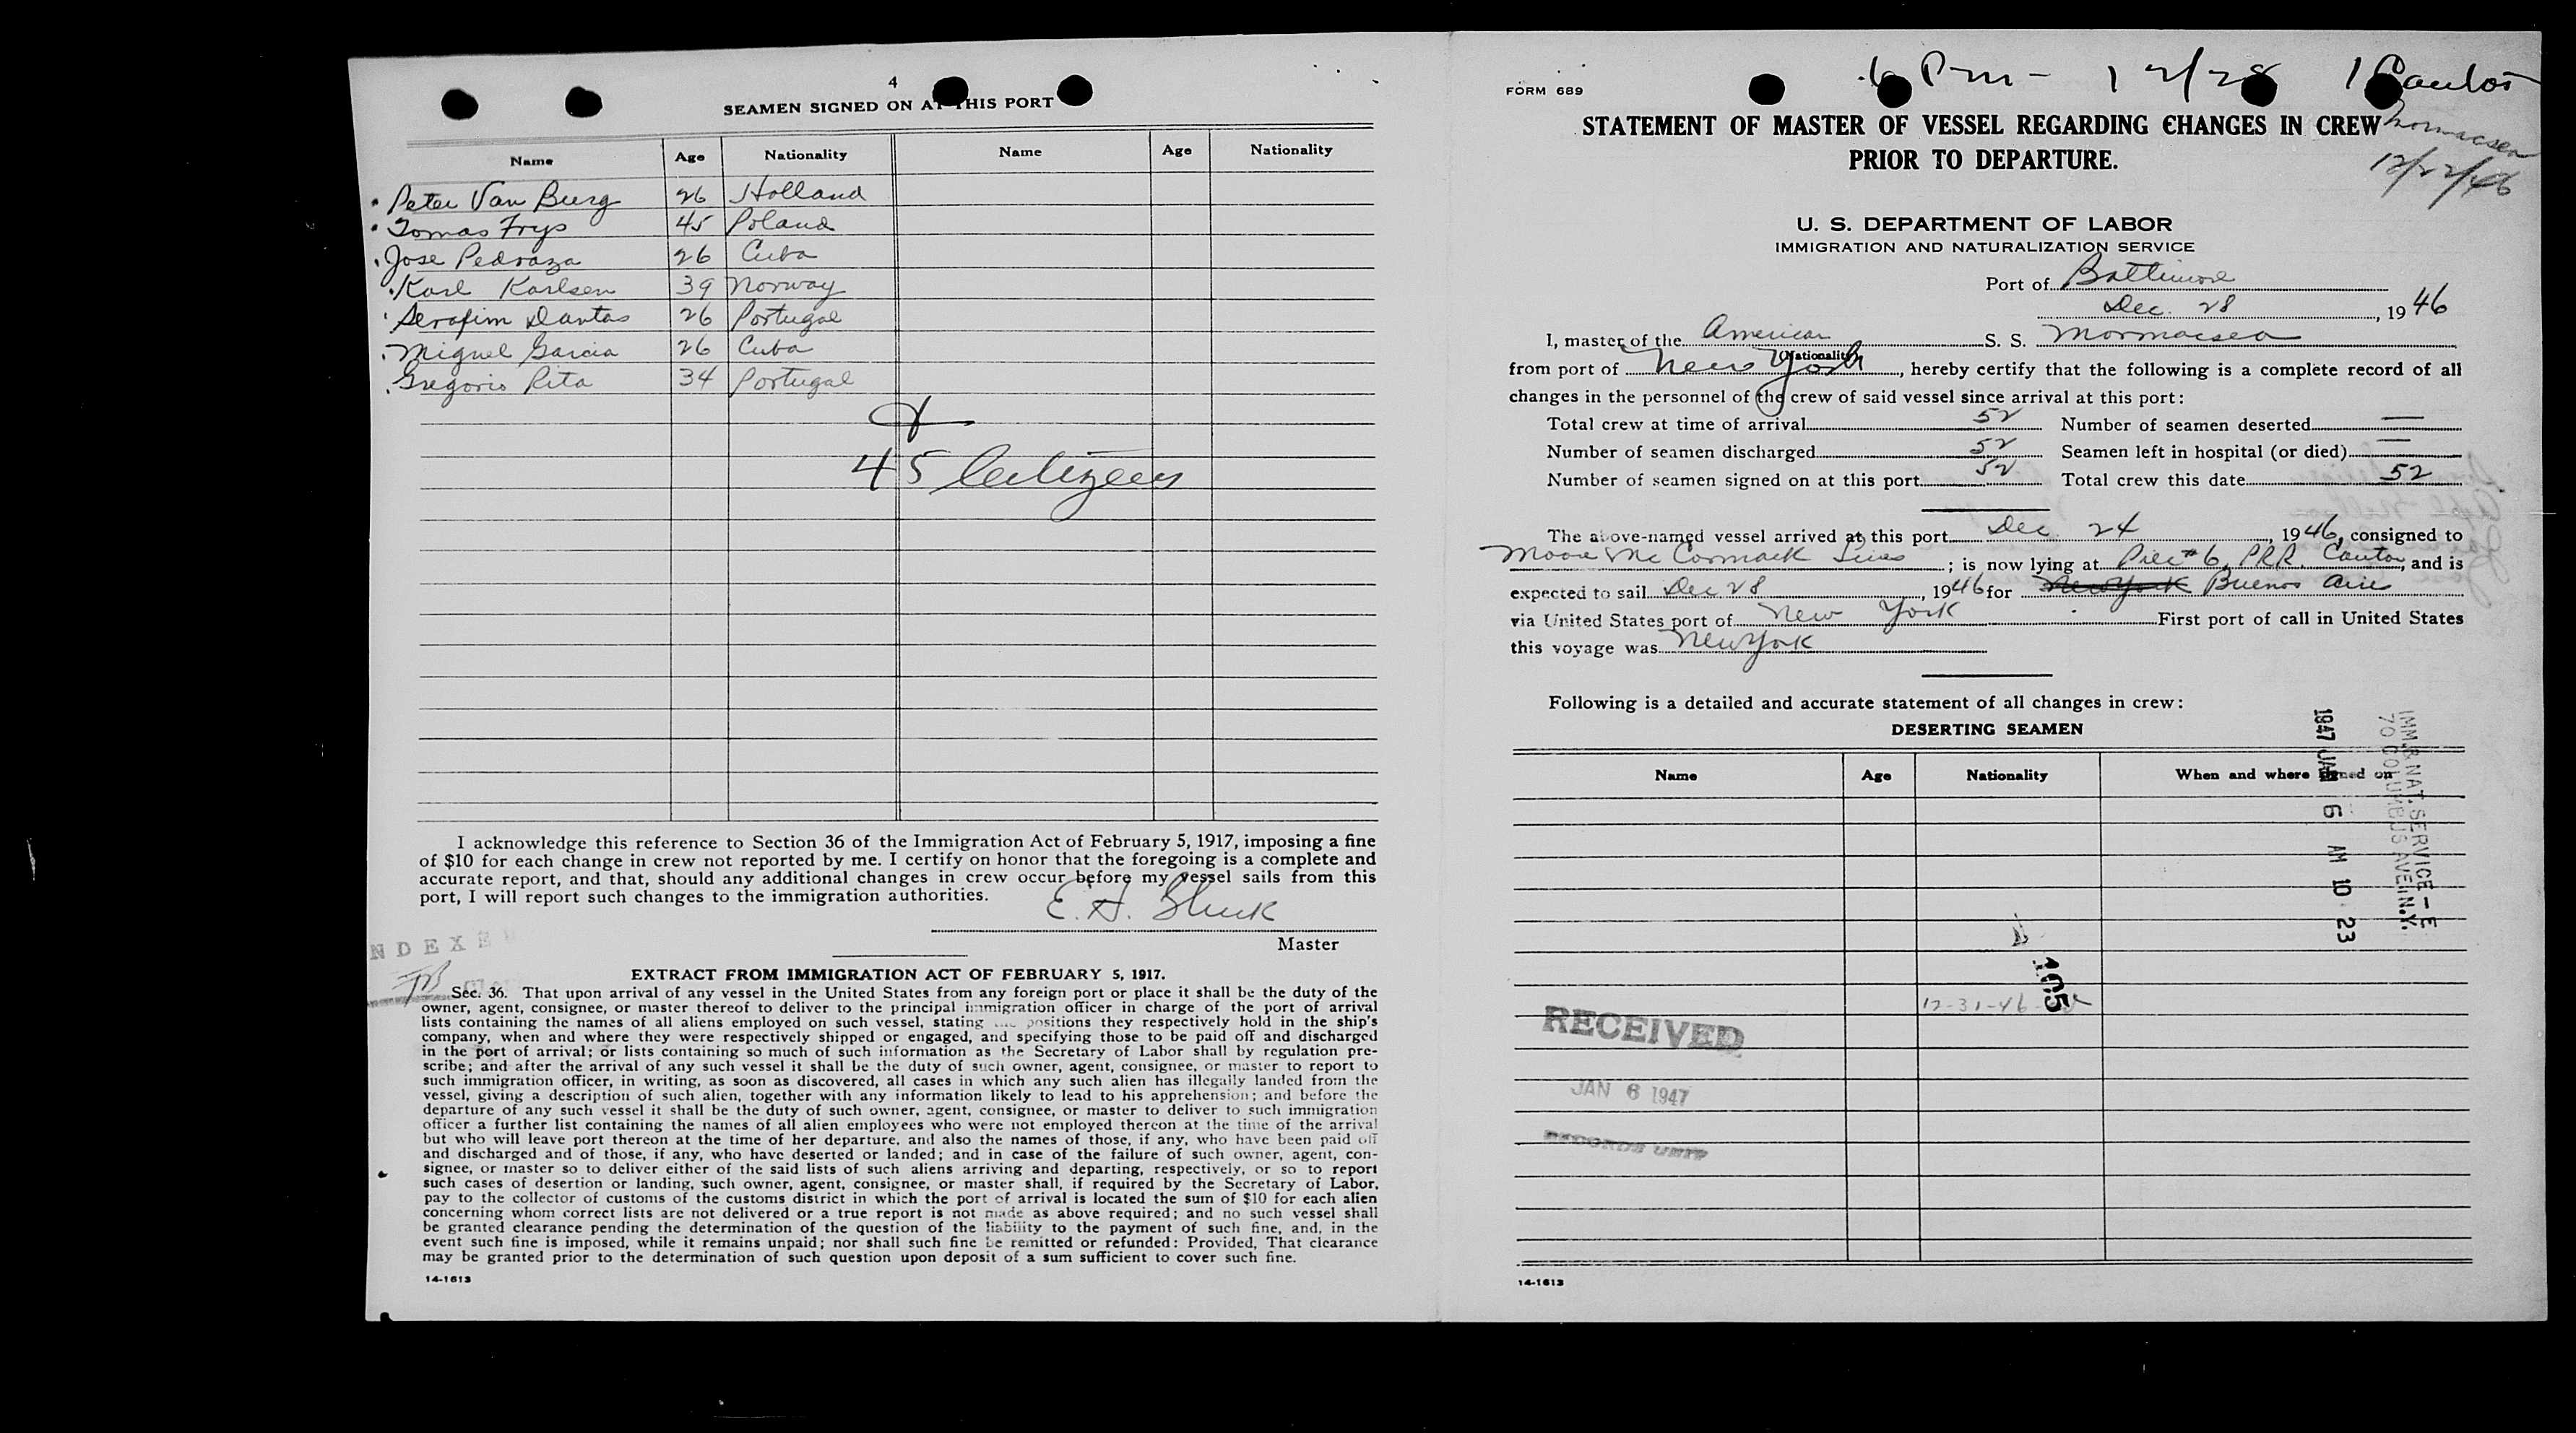 4
SEAMEN SIGNED ON AT THIS PORT
Name Age Nationality Name Age Nationality
Peter Van Burg 26 Holland
Tomas Frys 45 Poland
Jose Pedraza 26 Cuba
Karl Karlsen 39 Norway
Serafim Dantas 26 Portugal
Miguel Garcia 26 Cuba
Gregorio Rita 34 Portugal
&
45 Citizens
I acknowledge this reference to Section 36 of the Immigration Act of February 5, 1917, imposing a fine
of $10 for each change in crew not reported by me. I certify on honor that the foregoing is a complete and
accurate report, and that, should any additional changes in crew occur before my vessel sails from this
port, I will report such changes to the immigration authorities.
Master
NDEXE
EXTRACT FROM IMMIGRATION ACT OF FEBRUARY 5, 1917.
Sec. 36. That upon arrival of any vessel in the United States from any foreign port or place it shall be the duty of the
owner, agent, consignee, or master thereof to deliver to the principal immigration officer in charge of the port of arrival
lists containing the names of all aliens employed on such vessel, stating the positions they respectively hold in the ship's
company, when and where they were respectively shipped or engaged, and specifying those to be paid off and discharged
in the port of arrival; or lists containing so much of such information as the Secretary of Labor shall by regulation pre-
scribe; and after the arrival of any such vessel it shall be the duty of such owner, agent, consignee, or master to report to
such immigration officer, in writing, as soon as discovered, all cases in which any such alien has illegally landed from the
vessel, giving a description of such alien, together with any information likely to lead to his apprehension; and before the
departure of any such vessel it shall be the duty of such owner, agent, consignee, or master to deliver to such immigration
officer a further list containing the names of all alien employees who were not employed thereon at the time of the arrival
but who will leave port thereon at the time of her departure, and also the names of those, if any, who have been paid off
and discharged and of those, if any, who have deserted or landed; and in case of the failure of such owner, agent, con-
signee, or master so to deliver either of the said lists of such aliens arriving and departing, respectively, or so to report
such cases of desertion or landing, such owner, agent, consignee, or master shall, if required by the Secretary of Labor,
pay to the collector of customs of the customs district in which the port of arrival is located the sum of $10 for each alien
concerning whom correct lists are not delivered or a true report is not made as above required; and no such vessel shall
be granted clearance pending the determination of the question of the liability to the payment of such fine, and, in the
event such fine is imposed, while it remains unpaid; nor shall such fine be remitted or refunded: Provided, That clearance
may be granted prior to the determination of such question upon deposit of a sum sufficient to cover such fine.
14-1613
6 Pm - 12/28
FORM 689
STATEMENT OF MASTER OF VESSEL REGARDING CHANGES IN CREW
PRIOR TO DEPARTURE.
U. S. DEPARTMENT OF LABOR
IMMIGRATION AND NATURALIZATION SERVICE
Port of Baltimore
Dec. 28, 1946
I, master of the American S. S. Mormacsea
(Nationality)
from port of New York, hereby certify that the following is a complete record of all
changes in the personnel of the crew of said vessel since arrival at this port:
Total crew at time of arrival 52 Number of seamen deserted —
Number of seamen discharged 52 Seamen left in hospital (or died) —
Number of seamen signed on at this port 52 Total crew this date 52
The above-named vessel arrived at this port Dec. 24, 1946, consigned to
Moore McCormack Lines; is now lying at Pier #6, PRR. Canton, and is
expected to sail Dec 28, 1946 for New York Buenos Aire
via United States port of New York First port of call in United States
this voyage was New York
Following is a detailed and accurate statement of all changes in crew:
DESERTING SEAMEN
Name Age Nationality When and where signed on
IMM. & NAT. SERVICE - E
70 COLUMBUS AVE. N.Y.
1947 JAN 6 AM 10 23
105
12-31-46
RECEIVED
JAN 6 1947
RECORDS UNIT
14-1613